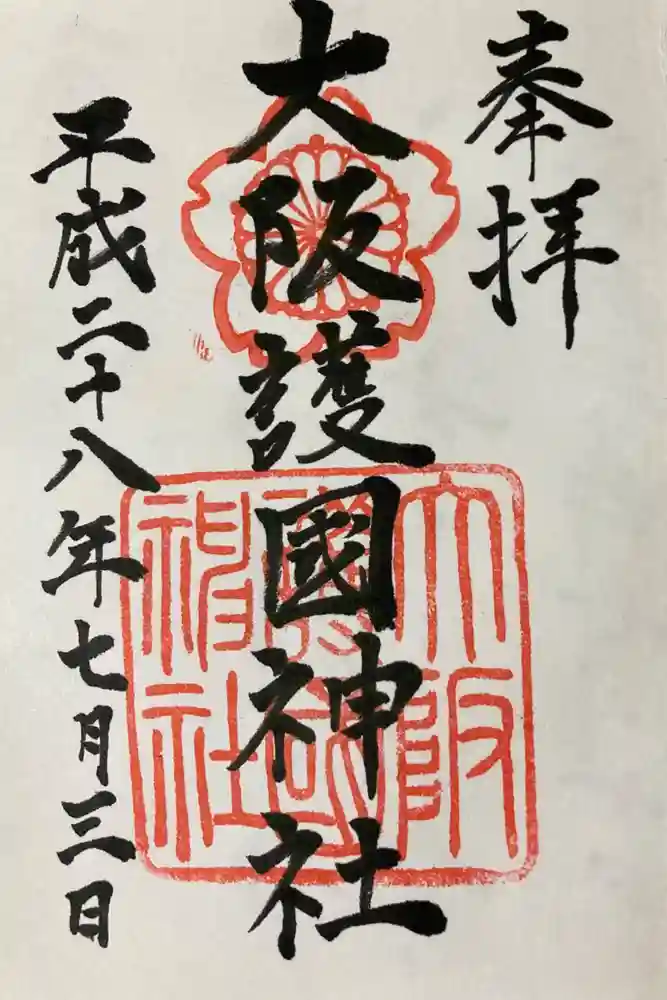 奉拝
大阪護國神社
平成二十八年七月三日
大阪
護國
神社